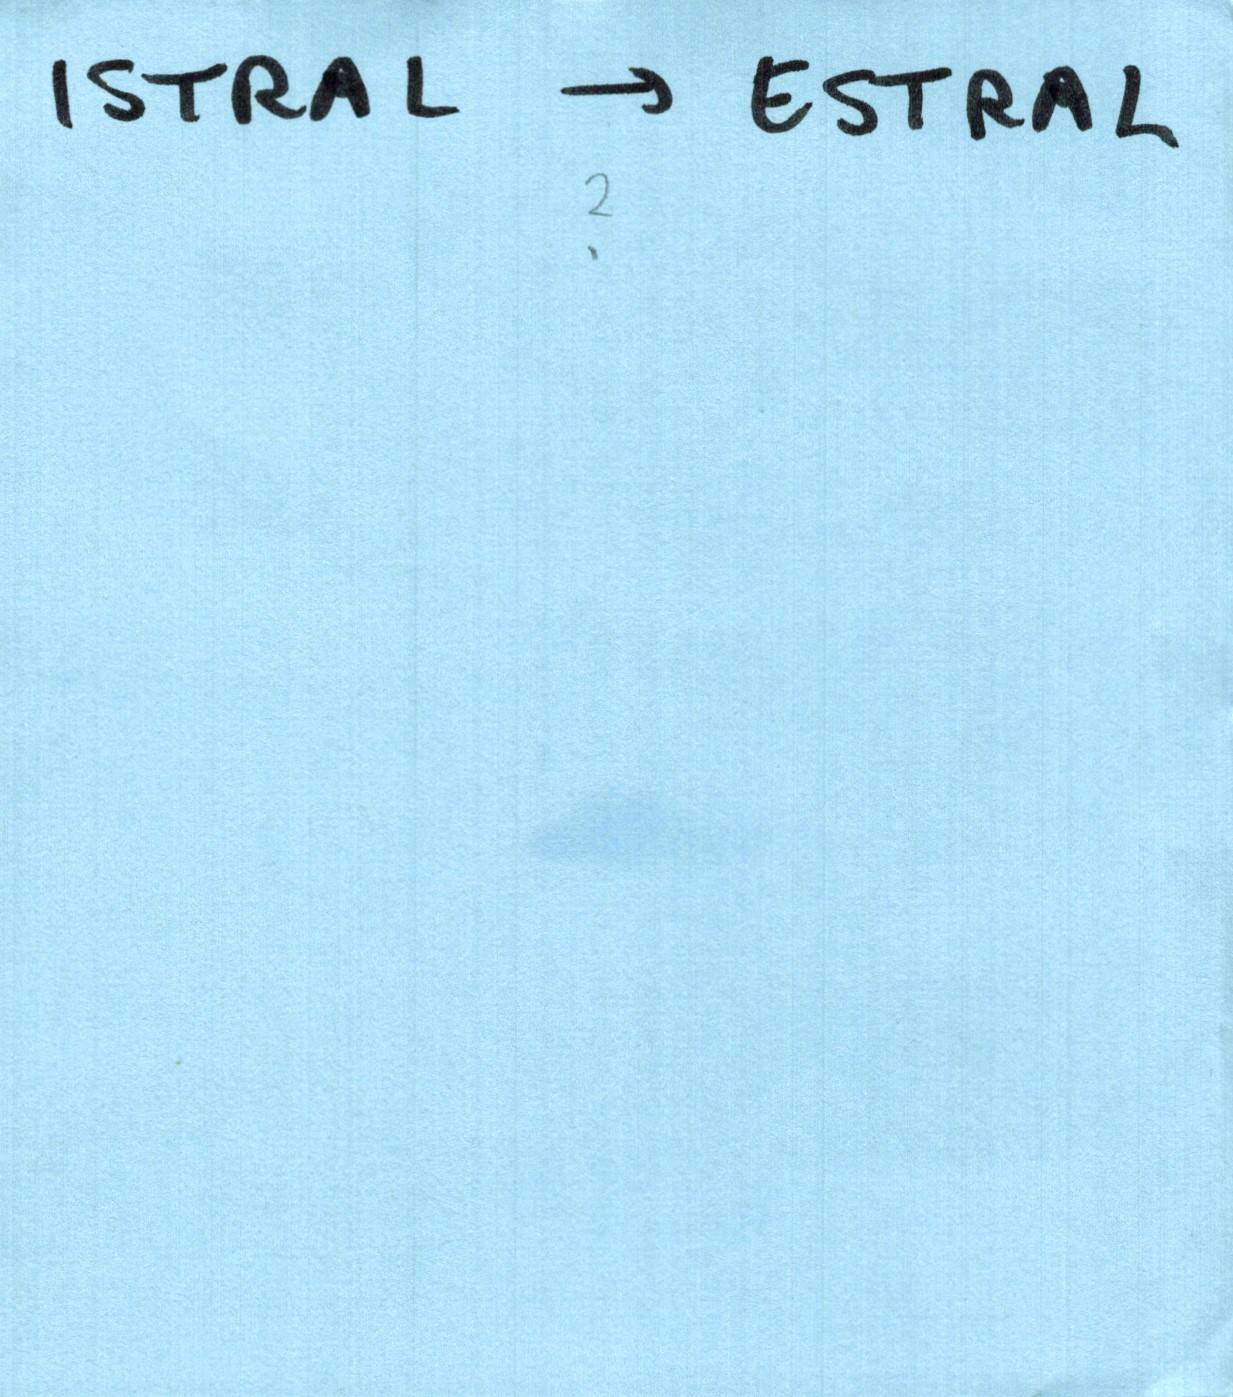 ISTRAL → ESTRAL
?